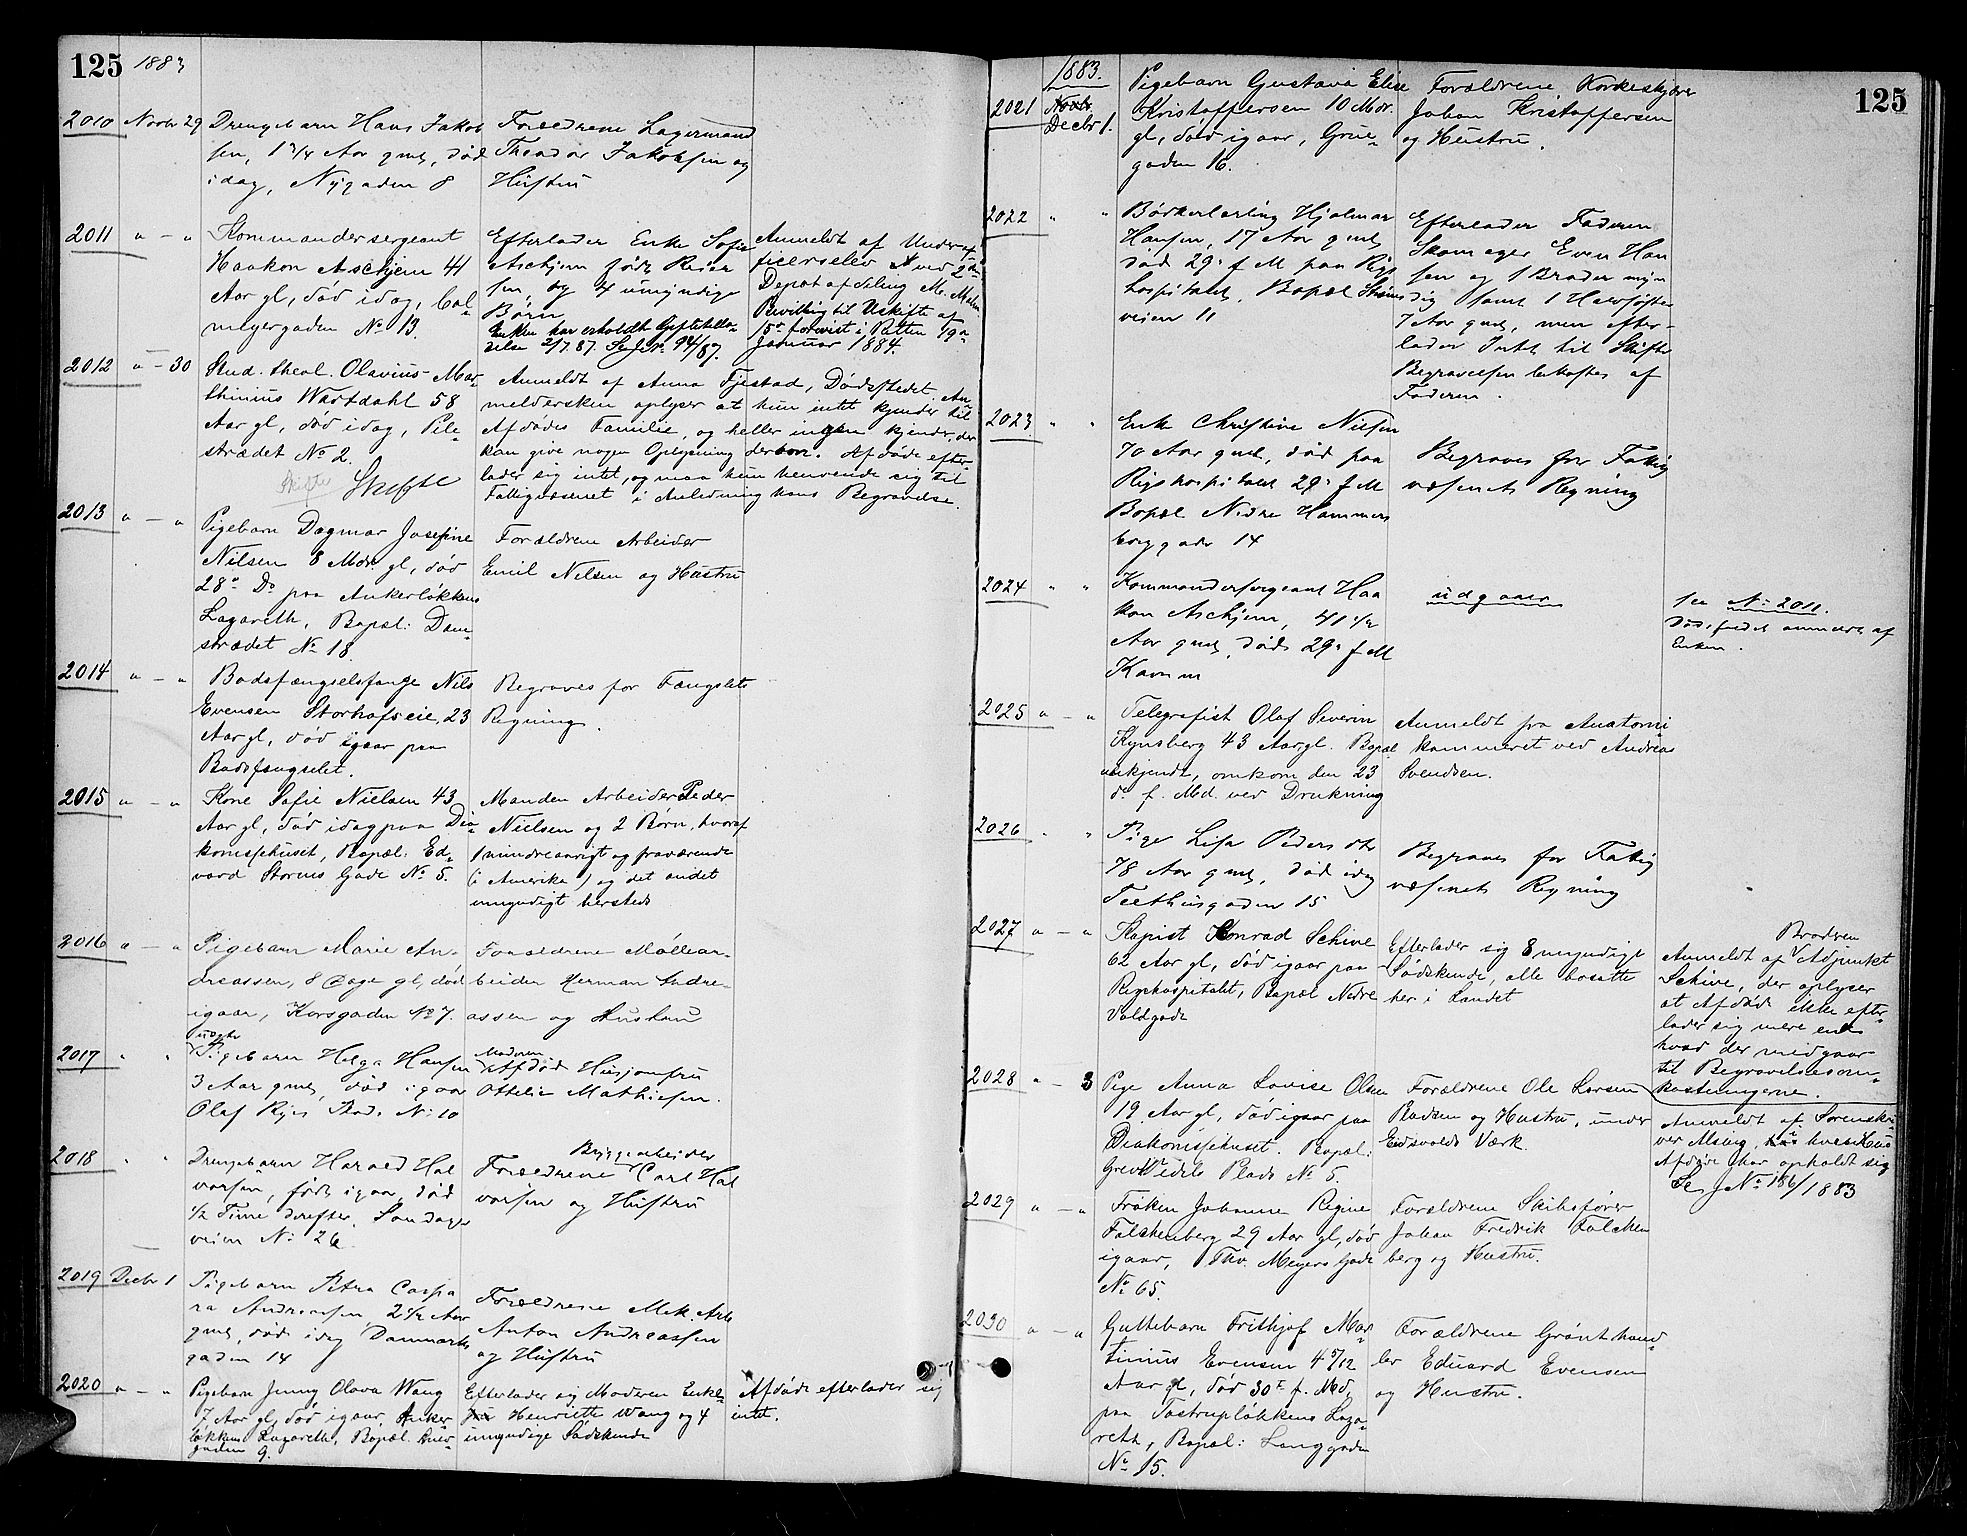 125 1883
2010 Novbr 29
Drengebarn Hans Jakob
sen, 1 3/4 Aar gml, død
idag, Nygaden 8
Forældrene Lagermand
Theodor Jakobsen og
Hustru
2011 " — "
Kommandersergeant
Haakon Aschjem 41
Aar gl, død idag, Col-
meyergaden No 13.
Efterlader Enke Sofie
Aschjem født
sen og 4 umyndige
Børn
Enken har erholdt Giftetilla-
delse 2/7.87.
Anmeldt af Underof-
ficerselev ved 2den
Depotafdeling
Bevilling til Uskifte af
forevist i Retten 19de
Januar 1884.
2012 " — 30
Stud. theol. Olavius Mar-
thinius Wartdahl 58
Aar gl, død idag, Pile-
strædet No 2.
Skifte Skifte
Anmeldt af Anna Fjestad, Dødsstedet. An-
meldersken oplyser at hun intet kjender til
Afdødes Familie, og heller ingen kjender, der
kan give nogen Oplysning derom. Afdøde efter-
lader sig intet, og maa hun henvende sig til
Fattigvæsenet i Anledning hans Begravelse.
2013 " — "
Pigebarn Dagmar Josefine
Nilsen 8 Mdr. gl, død
28de Ds paa Ankerløkkens
Lazareth, Bopæl: Dam-
strædet No 18
Forældrene Arbeider
Emil Nilsen og Hustru
2014 " — "
Bodsfængselsfange Nils
Evensen Storhofseie, 23
Aar gl, død igaar paa
Bodsfængselet.
Begraves for Fængslets
Regning.
2015 " — "
Kone Sofie Nielsen 43
Aar gl, død idag paa Dia-
konissehuset, Bopæl: Ed-
vard Storms Gade No 5.
Manden Arbeider Peder
Nielsen og 2 Børn, hvoraf
1 mindreaarigt og fraværende
(i Amerika) og det andet
umyndigt hersteds
2016 " — "
Pigebarn Marie An-
dreassen, 8 Dage gl, død
igaar, Korsgaden No 7.
Forældrene Møllear-
beider Herman Andre-
assen og Hustru
2017 " "
uægte
Pigebarn Helga Hansen
3 Aar gml, død igaar
Olaf Ryes Plads No 10
Moderen
Afdød Husjomfru
Ottilie Mathisen.
2018 " "
Drengebarn Harald Hal
vorsen, født igaar, død
1/2 Time derefter, Sandager
veien No 26
Bryggearbeider
Forældrene Carl Hal
vorsen og Hustru
2019 Decbr 1
Pigebarn Petra Caspa
ra Andreassen, 2 1/2 Aar
gml, død idag Danmarks
gaden 14
Forældrene Mek. Arb
Anton Andreassen
og Hustru
2020 " — "
Pigebarn Jenny Olava Wang
7 Aar gl, død igaar, Anker-
løkkens Lazareth, Bopæl
gaden 9.
Efterlader sig Moderen Enke-
fru Henriette Wang og 4
umyndige Sødskende
Afdøde efterlader sig
intet.
125
1883.
2021 Novbr
Decbr 1.
Pigebarn Gustava Elise
Kristoffersen 10 Mdr.
gl, død igaar, Grue-
gaden 16.
Forældrene Korkeskjærer
Johan Kristoffersen
og Hustru.
2022 " "
Bødkerlærling Hjalmar
Hansen, 17 Aar gml
død 29de f M paa Rigs
hospitalet, Bopæl Strøms
veien 11
Efterlader Faderen
Skomager Even Han
sen og 1 Broder myn
dig samt 1 Halvsøster
7 Aar gml, men efter-
lader Intet til Skifte
Begravelsen bekostes af
Faderen.
2023 " "
Enke Christine Nilsen
70 Aar gml, død paa
Rigshospitalet 29de f M
Bopæl Nedre Hammers
borggade 14
Begraves for Fattig
væsenets Regning
2024 " "
Kommandersergeant Haa
kon Aschjem, 41 1/2
Aar gml, død 29de f M
udgaaer
se No 2011.
Dødsfaldet anmeldt af
Enken.
2025 " — "
Telegrafist Olaf Severin
Kynsberg 43 Aar gl. Bopæl
ukjendt, omkom den 23
d. f. Md. ved Drukning
Anmeldt fra Anatomi-
kammeret ved Andreas
Svendsen.
2026 " "
Pige Lisa Pedersdtr
78 Aar gml, død idag
Teelthusgaden 15
Begraves for Fattig
væsenets Regning
2027 " — "
Kopist Konrad Schive
62 Aar gl, død igaar paa
Rigshospitalet, Bopæl Nedre
Voldgade
Efterlader sig 8 myndige
Sødskende, alle bosatte
her i Landet
Broderen
Anmeldt af Adjunkt
Schive, der oplyser
at Afdøde ikke efter-
lader sig mere end
hvad der medgaar
til Begravelsesom-
kostningerne.
2028 " — 3
Pige Anna Lovise Olsen
19 Aar gl, død igaar paa
Diakonissehuset. Bopæl:
Grev Wedels Plads No 5.
Forældrene Ole Larsen
Badsen og Hustru, under
Eidsvolds Værk.
Anmeldt af Sorenskri-
ver Alsing, i hvis Hus
Afdøde har opholdt sig
Se J No 186/1883
2029 " — "
Frøken Johanne Regine
Falckenberg 29 Aar gl, død
igaar, Thv. Meyers Gade
No 65.
Forældrene Skibsfører
Johan Fredrik Falcken
berg og Hustru.
2030 " — "
Guttebarn Frithjof Mar-
tinius Evensen 4 5/12
Aar gl, død 30te f. Md,
paa Tøstrupløkkens Laza-
reth, Bopæl: Langgaden
No 15.
Forældrene Grønthand-
ler Eduard Evensen
og Hustru.